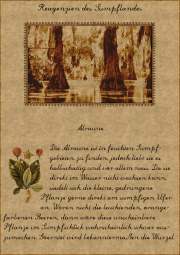 Reagenzien des Sumpflandes
Alraune
Die Alraune ist in feuchten Sumpf-
gebieten zu finden, jedoch liebt sie es
halbschattig und vor allem nass. Da sie
direkt im Wasser nicht wachsen kann,
siedelt sich die kleine, gedrungene
Pflanze gerne direkt am sumpfigen Ufer
an. Wären nicht die leuchtenden, orange-
farbenen Beeren, dann wäre diese unscheinbare
Pflanze im Sumpfdickicht wahrscheinlich schwer aus-
zumachen. Begehrt wird bekanntermaßen die Wurzel